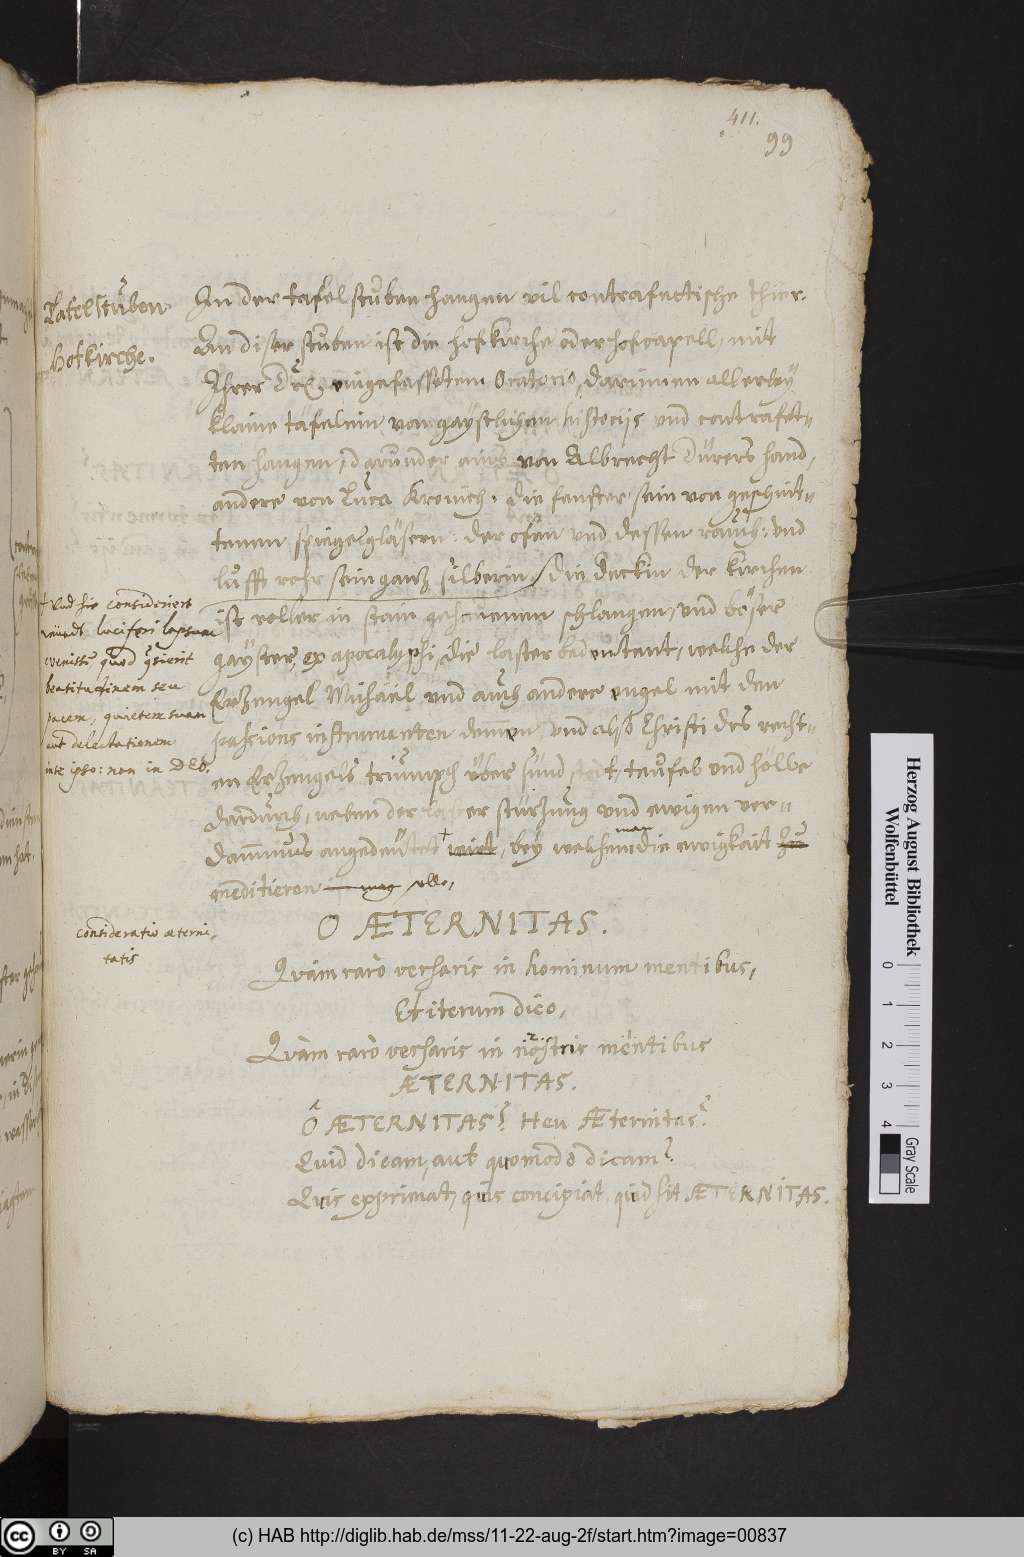 411.
99
Tafelstuben
Hofkirche.
In der tafelstuben hangen vil contrafectische thier.
An diser stuben ist die hofkirche oder hofcapell, mit
Ihrer eingefassetem Oratorio, darinnen allerley
klaine täfelein von gaystlichen historijs und contrafet-
ten hangen, darunder ains von Albrecht Dürers hand,
andere von Luca Kronich. die fenster sein von geschnit-
tenen spiegelgläsern: der ofen und dessen rauch: und
lufft rohr sein gantz silberin, die deckin der kirchen
ist voller in stain gehauenen schlangen, und böser
gayster, ex apocalypsi, die laster bedeutent, welche der
Ertzengel Michael und auch andere engel mit den
passions instrumenten demmen, und also Christi des recht-
en Ertzengels triumph über sünd, teufel und hölle
dardurch, neben der laster stürtzung und ewigen ver-
damnus angedeutet + wirt, bey welchem man die ewigkait zu
meditieren mag
+ Und hie consideriert
luciferi lapsum
quod quærerit
beatitudinem seu
pacem, quietem suam
aut delectationem
in se ipso: non in DEO.
consideratio æterni-
tatis
O ÆTERNITAS.
Quàm rarò versaris in hominum mentibus,
Et iterum dico,
Quàm rarò versaris in nostris mentibus
ÆTERNITAS.
Ô ÆTERNITAS? Heu Æternitas?
Quid dicam, aut quomodo dicam?
Quis exprimat, quis concipiat, quid sit ÆTERNITAS.
Herzog August Bibliothek
Wolfenbüttel
0 1 2 3 4
Gray Scale
cc BY SA
(c) HAB http://diglib.hab.de/mss/11-22-aug-2f/start.htm?image=00837